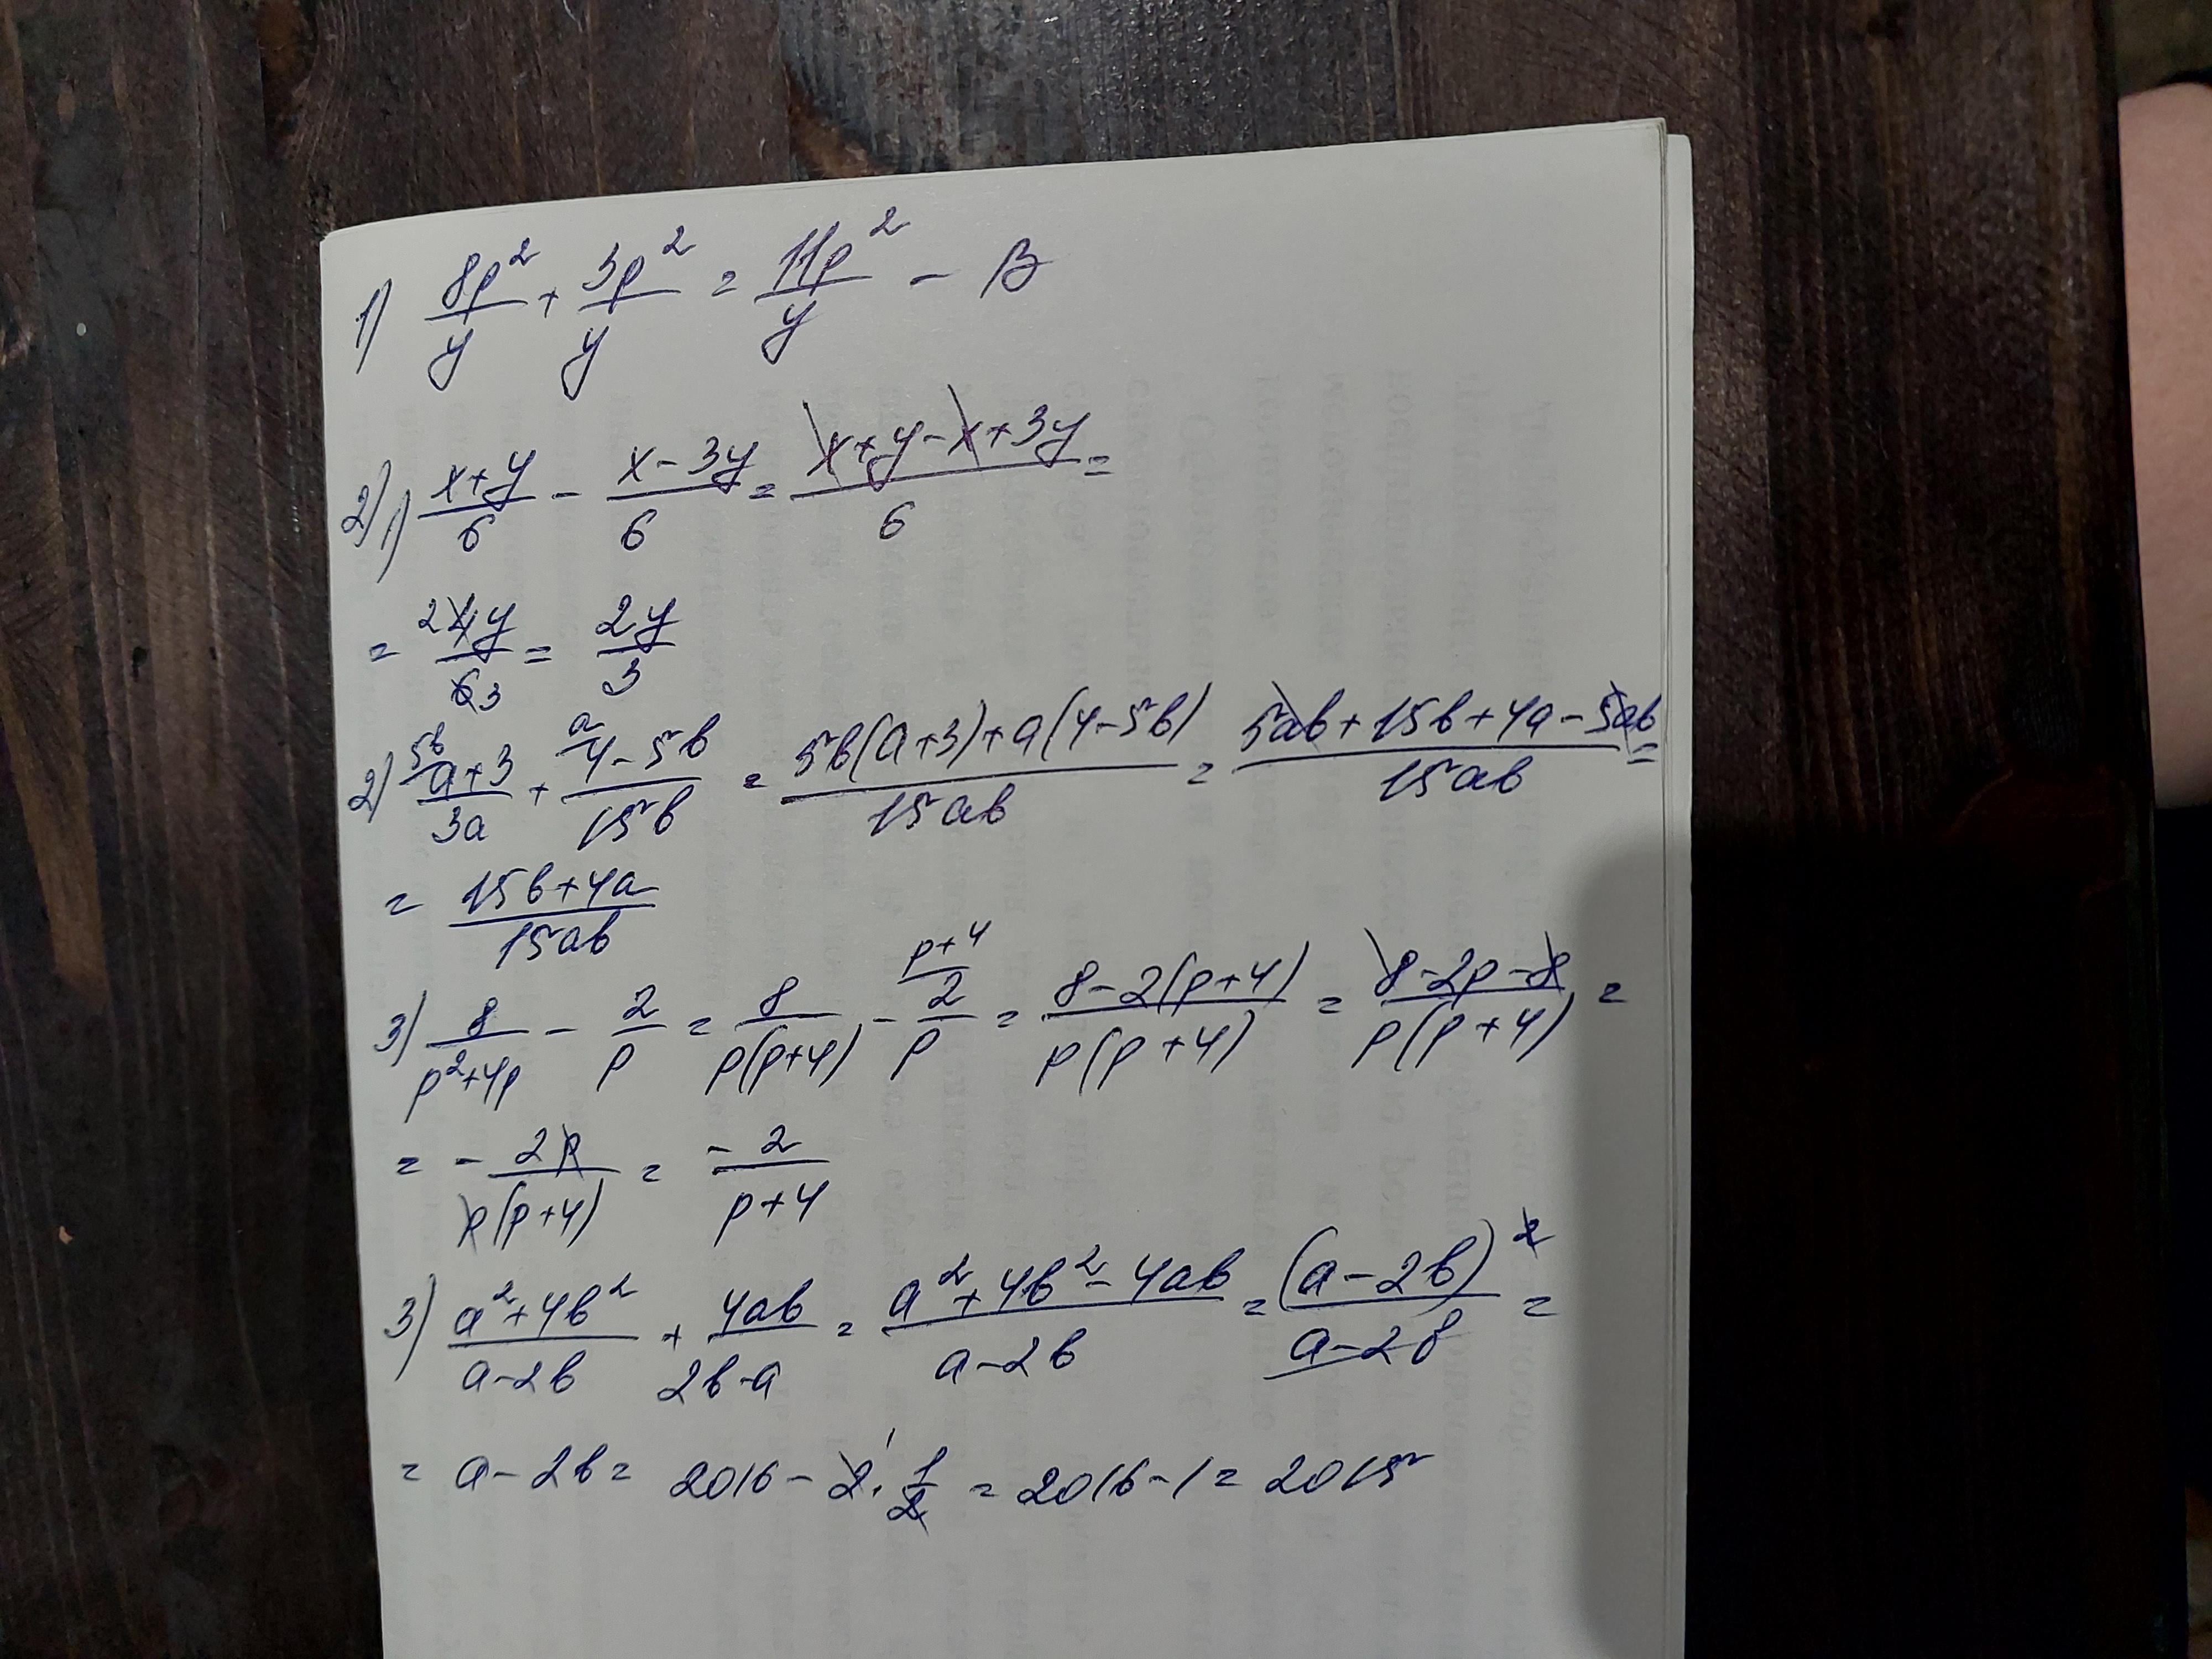 1) 8p²/y + 3p²/y = 11p²/y - В
2) 1) (x+y)/6 - (x-3y)/6 = (x+y-x+3y)/6 =
= 2 4y/6 3 = 2y/3
2) 5b/ (a+3)/3a + a/ (4-5b)/15b = (5b(a+3)+a(4-5b))/15ab = (5ab+15b+4a-5ab)/15ab =
= (15b+4a)/15ab
3) 8/(p²+4p) - 2/p = 8/(p(p+4)) - p+4/ 2/p = (8-2(p+4))/(p(p+4)) = (8-2p-8)/(p(p+4)) =
= - 2p/(p(p+4)) = - 2/(p+4)
3) (a²+4b²)/(a-2b) + 4ab/(2b-a) = (a²+4b²-4ab)/(a-2b) = (a-2b)²/(a-2b) =
= a-2b = 2016 - 2 1 · 1/2 = 2016-1 = 2015